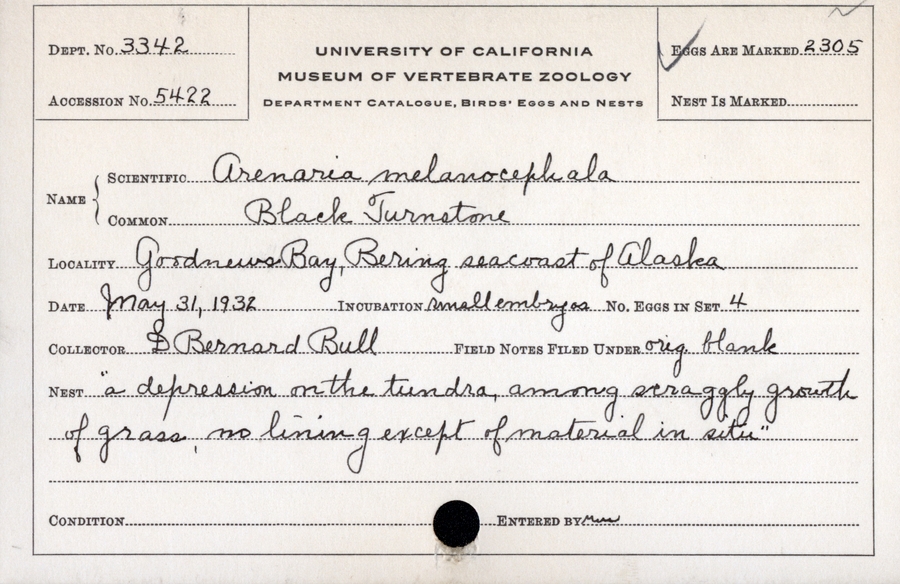 DEPT. No. 3342
ACCESSION No. 5422
UNIVERSITY OF CALIFORNIA
MUSEUM OF VERTEBRATE ZOOLOGY
DEPARTMENT CATALOGUE, BIRDS' EGGS AND NESTS
EGGS ARE MARKED 2305
NEST IS MARKED
NAME
SCIENTIFIC Arenaria melanocephala
COMMON Black Turnstone
LOCALITY Goodnews Bay, Bering seacoast of Alaska
DATE May 31, 1932 INCUBATION small embryos No. EGGS IN SET 4
COLLECTOR Bernard Bull FIELD NOTES FILED UNDER orig. blank
NEST "a depression on the tundra, among scraggly growth
of grass, no lining except of material in situ"
CONDITION ENTERED BY